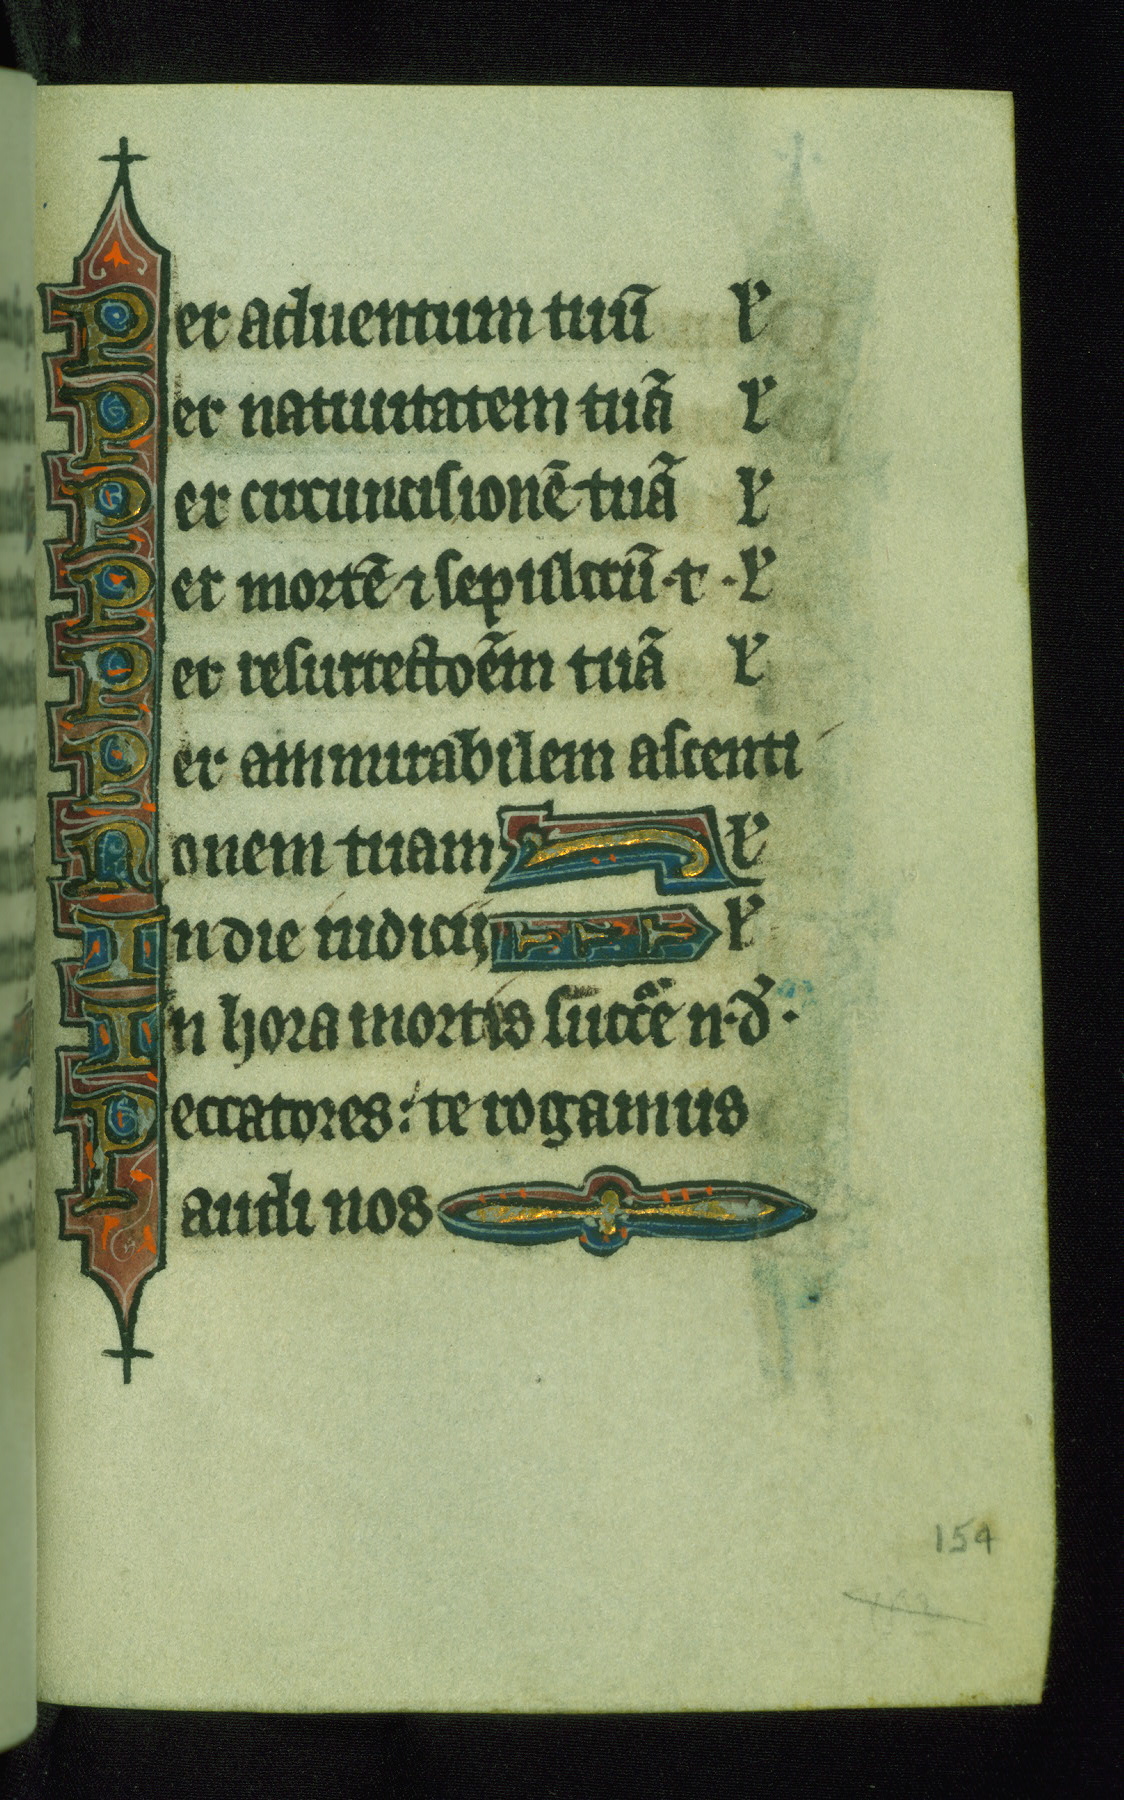 Per aduentum tuū ℟
Per natiuitatem tuā ℟
Per circuncisionē tuā ℟
Per mortē ⁊ sepulctū · t · ℟
Per resurrectoēm tuā ℟
Per ammirabilem ascenti
onem tuam ℟
In die iudicij ℟
In hora mortis succ̄e n · d̄ ·
Peccatores : te rogamus
audi nos
154